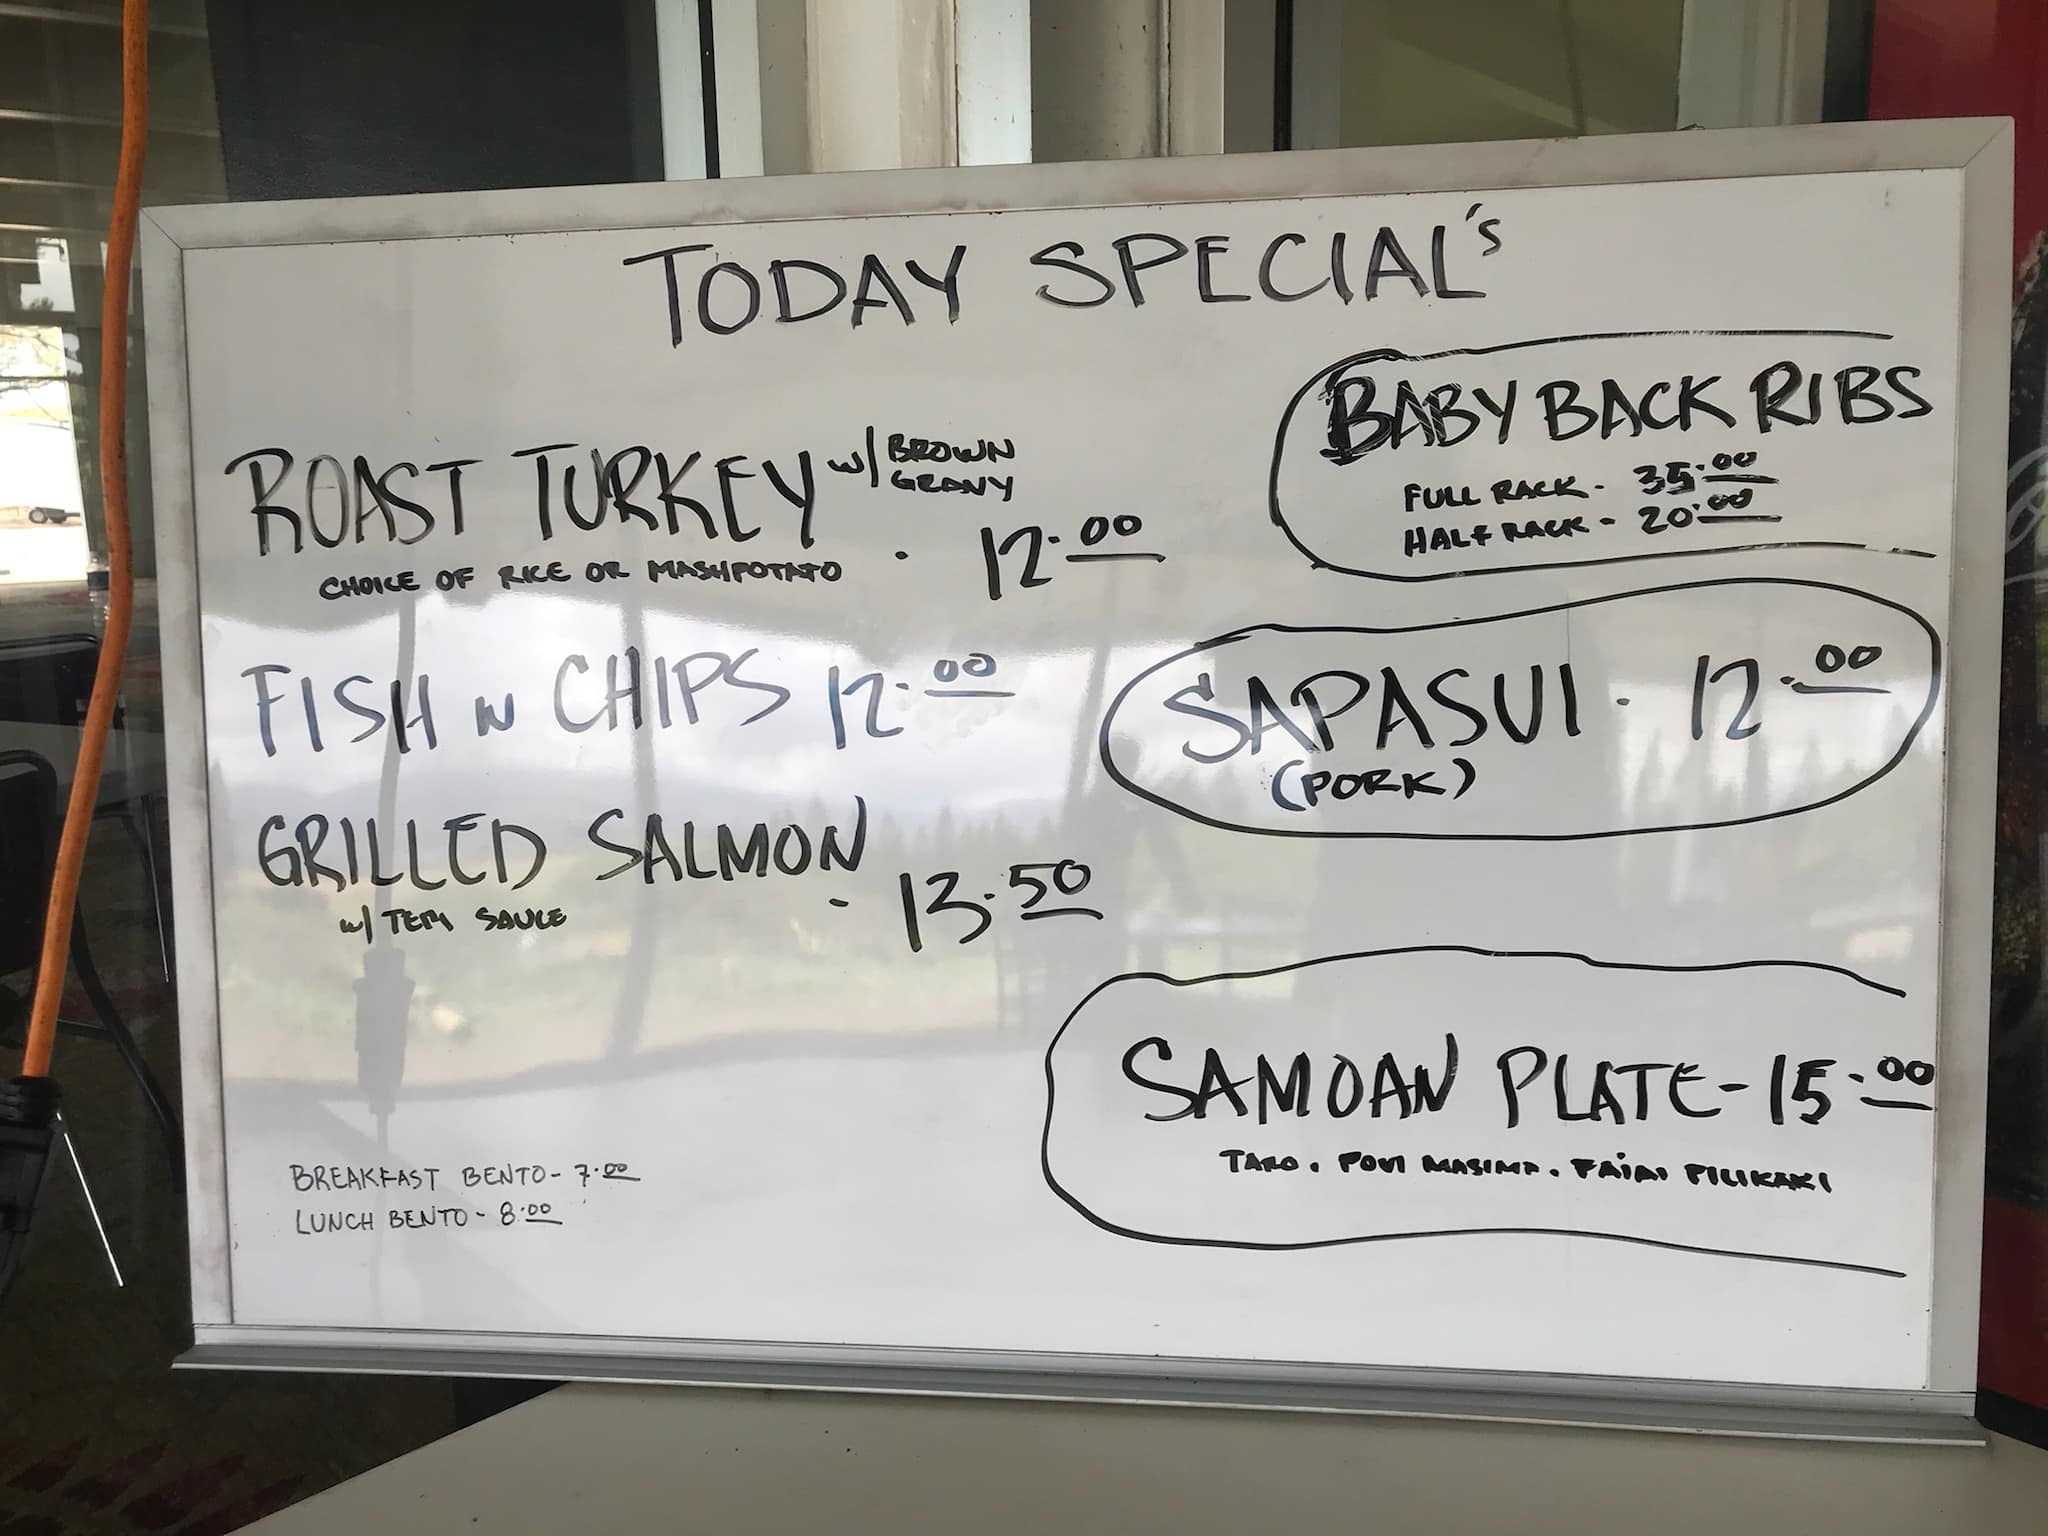 TODAY SPECIAL's
ROAST TURKEY w/ BROWN
GRAVY
CHOICE OF RICE OR MASHPOTATO . 12.00
FISH N CHIPS 12.00
GRILLED SALMON - 13.50
w/ TERI SAUCE
BREAKFAST BENTO - 7.00
LUNCH BENTO - 8.00
BABY BACK RIBS
FULL RACK - 35.00
HALF RACK - 20.00
SAPASUI - 12.00
(PORK)
SAMOAN PLATE - 15.00
TARO . POVI MASIMA . FAIAI PILIKAKI